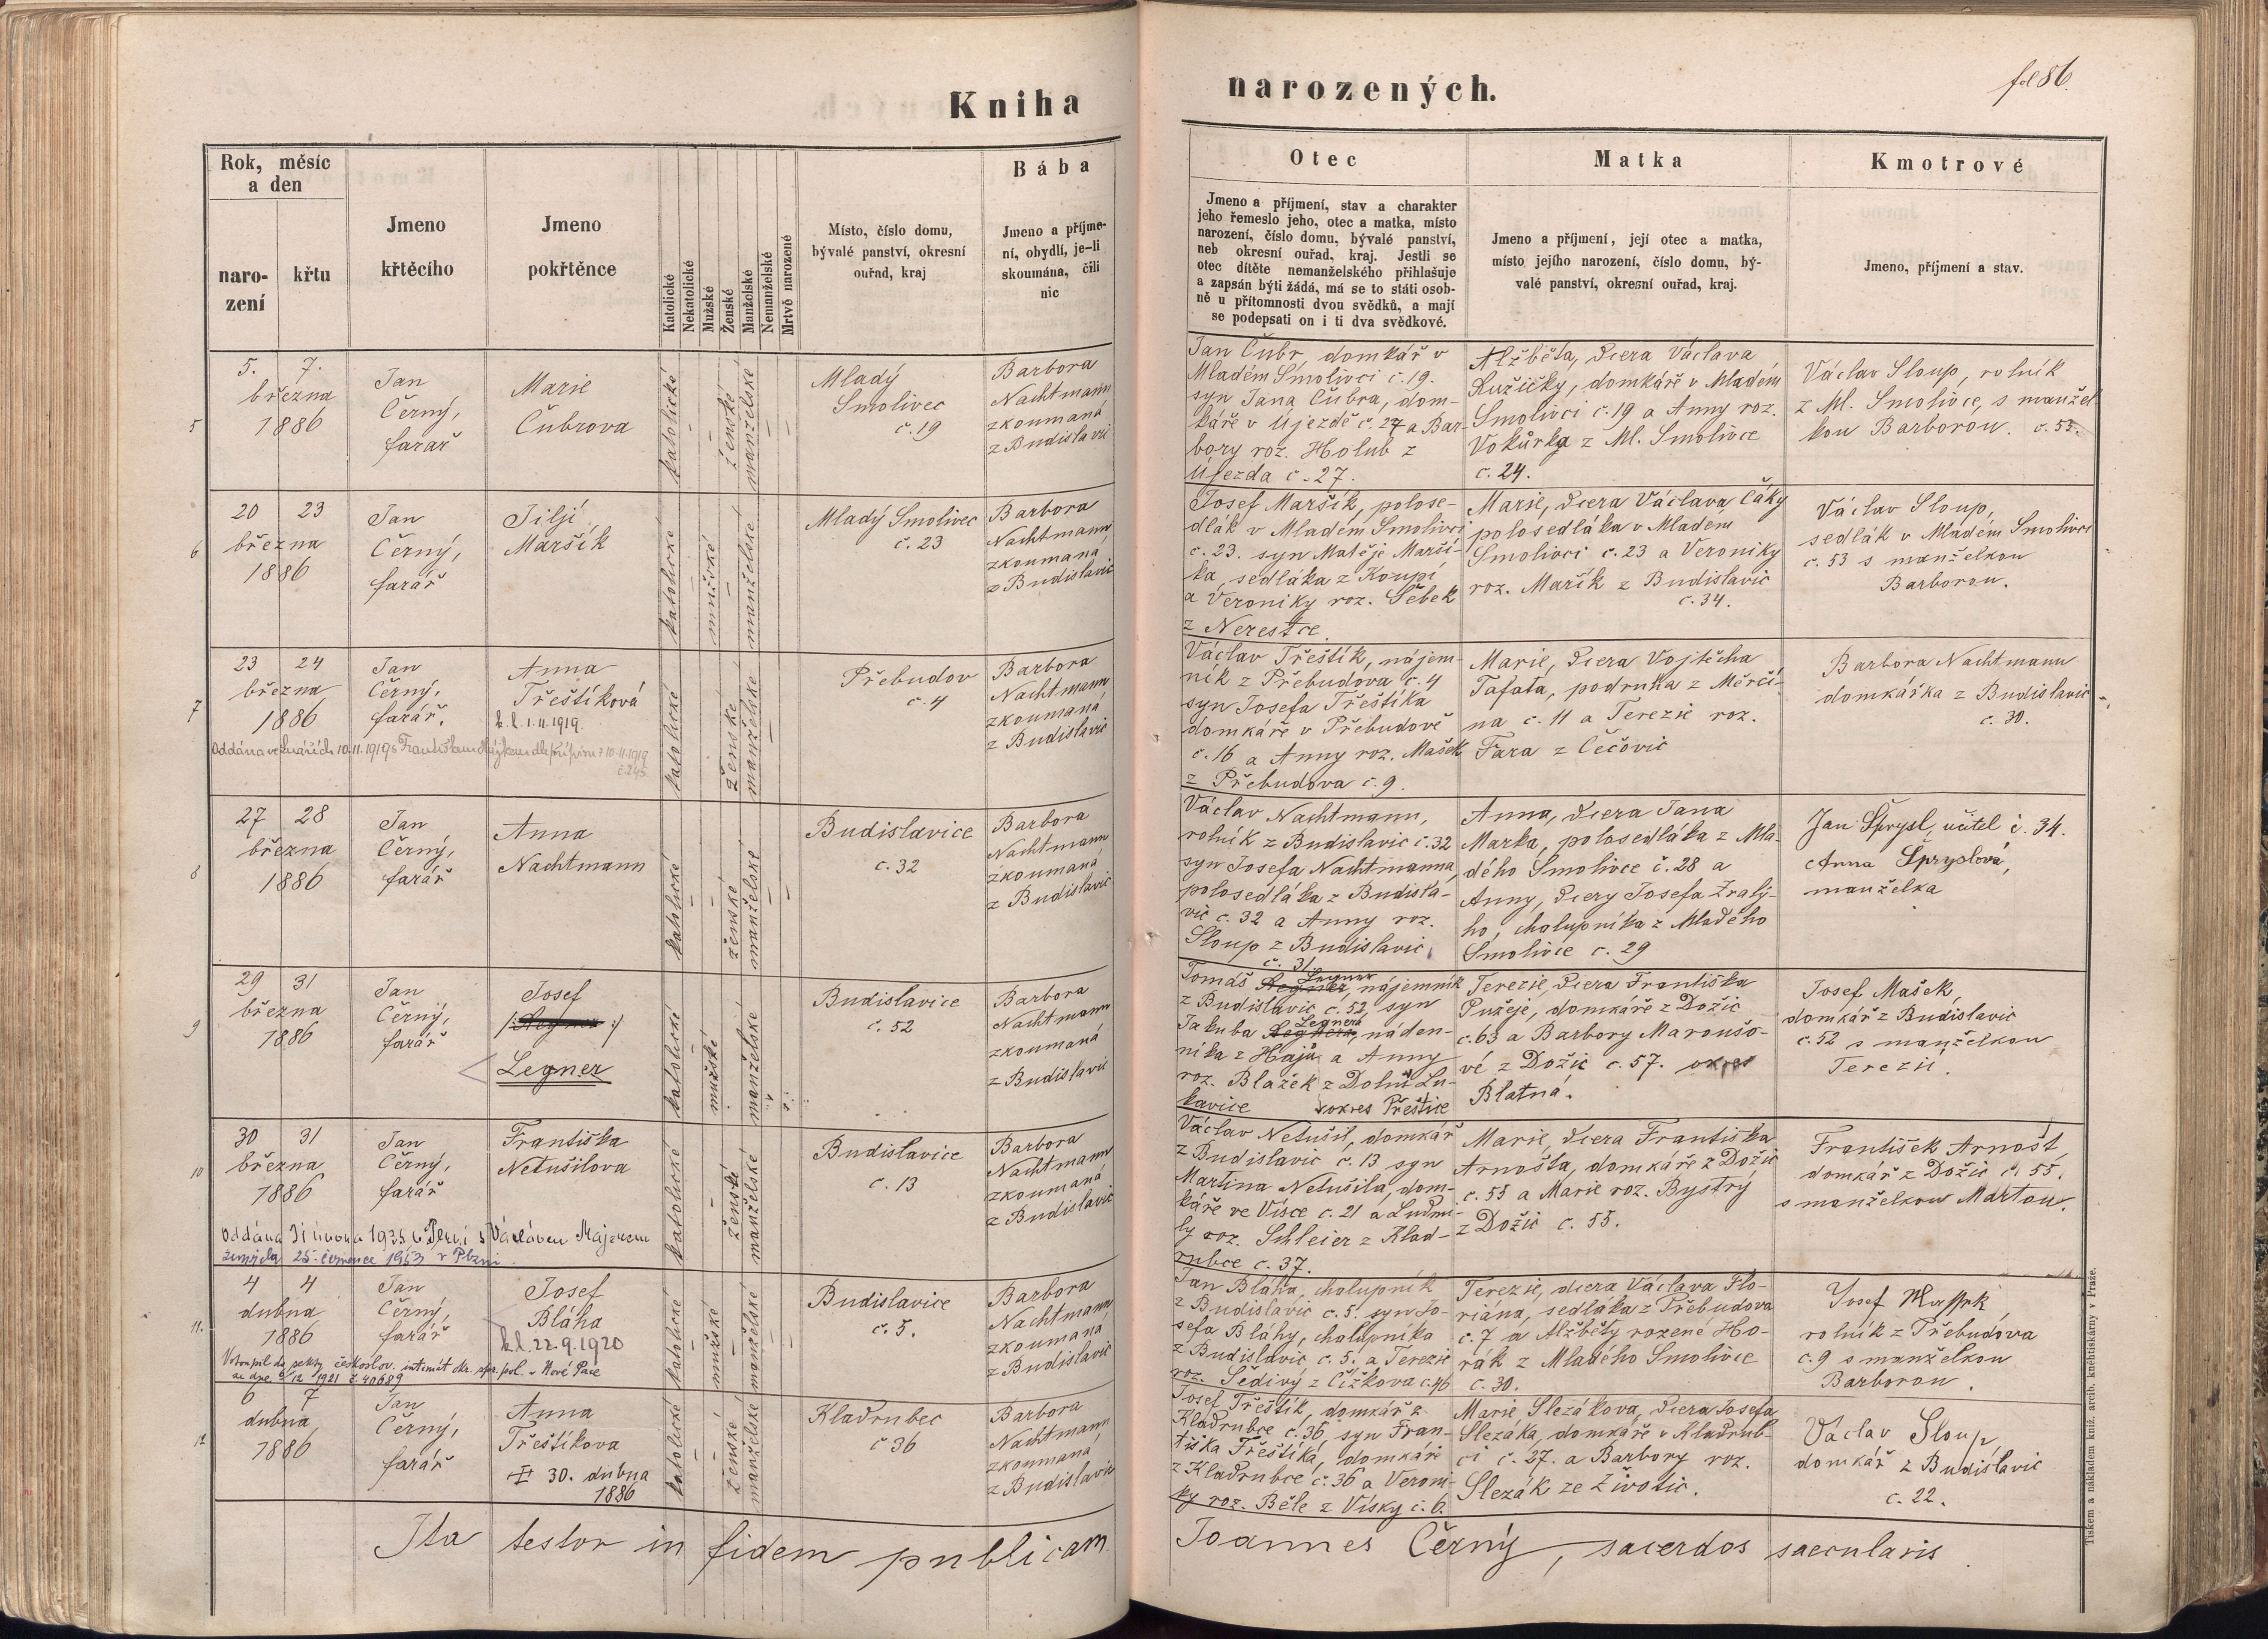 Kniha
narozených.
fol 86.
Rok, měsíc
a den
naro-
zení
křtu
Jmeno
křtěcího
Jmeno
pokřtěnce
Katolické
Nekatolické
Mužské
Ženské
Manželské
Nemanželské
Mrtvě narozené
Místo, číslo domu,
bývalé panství, okresní
ouřad, kraj
Bába
Jmeno a příjme-
ní, obydlí, je-li
skoumána, čili
nic
Otec
Jmeno a příjmení, stav a charakter
jeho řemeslo jeho, otec a matka, místo
narození, číslo domu, bývalé panství,
neb okresní ouřad, kraj. Jestli se
otec dítěte nemanželského přihlašuje
a zapsán býti žádá, má se to státi osob-
ně u přítomnosti dvou svědků, a mají
se podepsati on i ti dva svědkové.
Matka
Jmeno a příjmení, její otec a matka,
místo jejího narození, číslo domu, bý-
valé panství, okresní ouřad, kraj.
Kmotrové
Jmeno, příjmení a stav.
5
5. 7.
března
1886
Jan
Černý,
farař
Marie
Čubrova
katolické
ženské
manželské
Mladý
Smolivec
č. 19
Barbora
Nachtmann
zkoumaná
z Budislavic
Jan Čubr, domkář v
Mladém Smolivci č. 19.
syn Jana Čubra, dom-
káře v Újezdě č. 27 a Bar-
bory roz. Holub z
Újezda č. 27.
Alžběta, dcera Václava
Ružičky, domkáře v Mladém
Smolivci č. 19 a Anny roz.
Vokůrka z Ml. Smolivce
č. 24.
Václav Sloup, rolník
z Ml. Smolivce, s manžel-
kou Barborou. č. 53.
6
20 23
března
1886
Jan
Černý,
farář
Jiljí
Maršík
katolické
mužské
manželské
Mladý Smolivec
č. 23
Barbora
Nachtmann,
zkoumaná
z Budislavic
Josef Maršík, polose-
dlák v Mladém Smolivci
č. 23. syn Matěje Marší-
ka, sedláka z Koupí
a Veroniky roz. Šebek
z Nerestce.
Marie, dcera Václava Čáky
polosedláka v Mladém
Smolivci č. 23 a Veroniky
roz. Mařík z Budislavic
č. 34.
Václav Sloup,
sedlák v Mladém Smolivci
č. 53 s manželkou
Barborou.
7
23 24
března
1886
Jan
Černý,
farář.
Anna
Třeštíková
k. l. 1.11.1919.
Oddána ve Lnářích 10.11.1919 s Františkem
č. 245
katolické
ženské
manželské
Přebudov
č. 4
Barbora
Nachtmann,
zkoumaná
z Budislavic
Václav Třeštík, nájem-
ník z Přebudova č. 4
syn Josefa Třeštíka
domkáře v Přebudově
č. 16 a Anny roz. Mašek
z Přebudova č. 9.
Marie, dcera Vojtěcha
Tafata, podruha z Měrčí-
na č. 11 a Terezie roz.
Fara z Čečovic
Barbora Nachtmann
domkářka z Budislavic
č. 30.
8
27 28
března
1886
Jan
Černý,
farář
Anna
Nachtmann
katolické
ženské
manželské
Budislavice
č. 32
Barbora
Nachtmann
zkoumaná
z Budislavic
Václav Nachtmann,
rolník z Budislavic č. 32
syn Josefa Nachtmanna,
polosedláka z Budisla-
vic č. 32 a Anny roz.
Sloup z Budislavic
č. 31
Anna, dcera Jana
Marka, polosedláka z Mla-
dého Smolivce č. 28 a
Anny, dcery Josefa Zralý-
ho, chalupníka z Mladého
Smolivce č. 29
Jan Šprysl, učitel č. 34.
Anna Špryslová,
manželka
9
29 31
března
1886
Jan
Černý,
farář
Josef
Legner
katolické
mužské
manželské
Budislavice
č. 52
Barbora
Nachtmann
zkoumaná
z Budislavic
Legner
Tomáš Regner nájemník
z Budislavic č. 52, syn
Legnera
Jakuba Regnera, náden-
níka z Hájů a Anny
roz. Blažek z Dolní Lu-
kavice okres Přeštice
Terezie, dcera Františka
Pužeje, domkáře z Dožic
č. 63 a Barbory Maroušo-
vé z Dožic č. 57. okres
Blatná.
Josef Mašek,
domkář z Budislavic
č. 52 s manželkou
Terezií.
10
30 31
března
1886
Jan
Černý,
farář
Františka
Netušilova
Oddána 1935 v Plzni s Václavem
zemřela 25. července 1953 v Plzni
katolické
ženské
manželské
Budislavice
č. 13
Barbora
Nachtmann
zkoumaná
z Budislavic
Václav Netušil, domkář
z Budislavic č. 13 syn
Martina Netušila, dom-
káře ve Vísce č. 21 a Ludmi-
ly roz. Schleier z Klad-
rubce č. 37.
Marie, dcera Františka
Arnošta, domkáře z Dožic
č. 55 a Marie roz. Bystrý
z Dožic č. 55.
František Arnošt,
domkář z Dožic č. 55.
s manželkou Martou.
11.
4 4
dubna
1886
Jan
Černý,
farář
Josef
Bláha
k. l. 22.9.1920
Vstoupil do sekty českoslov. intimát okr. spr. pol. v Nové Pace
ze dne 12 1921 č. 40689
katolické
mužské
manželské
Budislavice
č. 5.
Barbora
Nachtmann
zkoumaná
z Budislavic
Jan Bláha, chalupník
z Budislavic č. 5. syn Jo-
sefa Bláhy, chalupníka
z Budislavic č. 5. a Terezie
roz. Šedivý z Čížkova č. 46
Terezie, dcera Václava Flo-
riána, sedláka z Přebudova
č. 7 a Alžběty rozené Ho-
rák z Mladého Smolivce
č. 30.
Josef Mašek
rolník z Přebudova
č. 9 s manželkou
Barborou.
12
6 7
dubna
1886
Jan
Černý,
farář
Anna
Třeštíkova
30. dubna
1886
katolické
ženské
manželské
Kladrubec
č 36
Barbora
Nachtmann,
zkoumaná
z Budislavic
Josef Třeštík, domkář z
Kladrubce č. 36, syn Fran-
tiška Třeštíka, domkáře
z Kladrubce č. 36 a Veroni-
ky roz. Běle z Vísky č. 6.
Marie Slezákova, dcera Josefa
Slezáka, domkáře v Kladrub-
ci č. 27. a Barbory roz.
Slezák ze Životic.
Václav Sloup,
domkář z Budislavic
č. 22.
Ita testor in fidem publicam
Joannes Černý, sacerdos saecularis.
Tiskem a nákladem kníž. arcib. knihtiskárny v Praze.